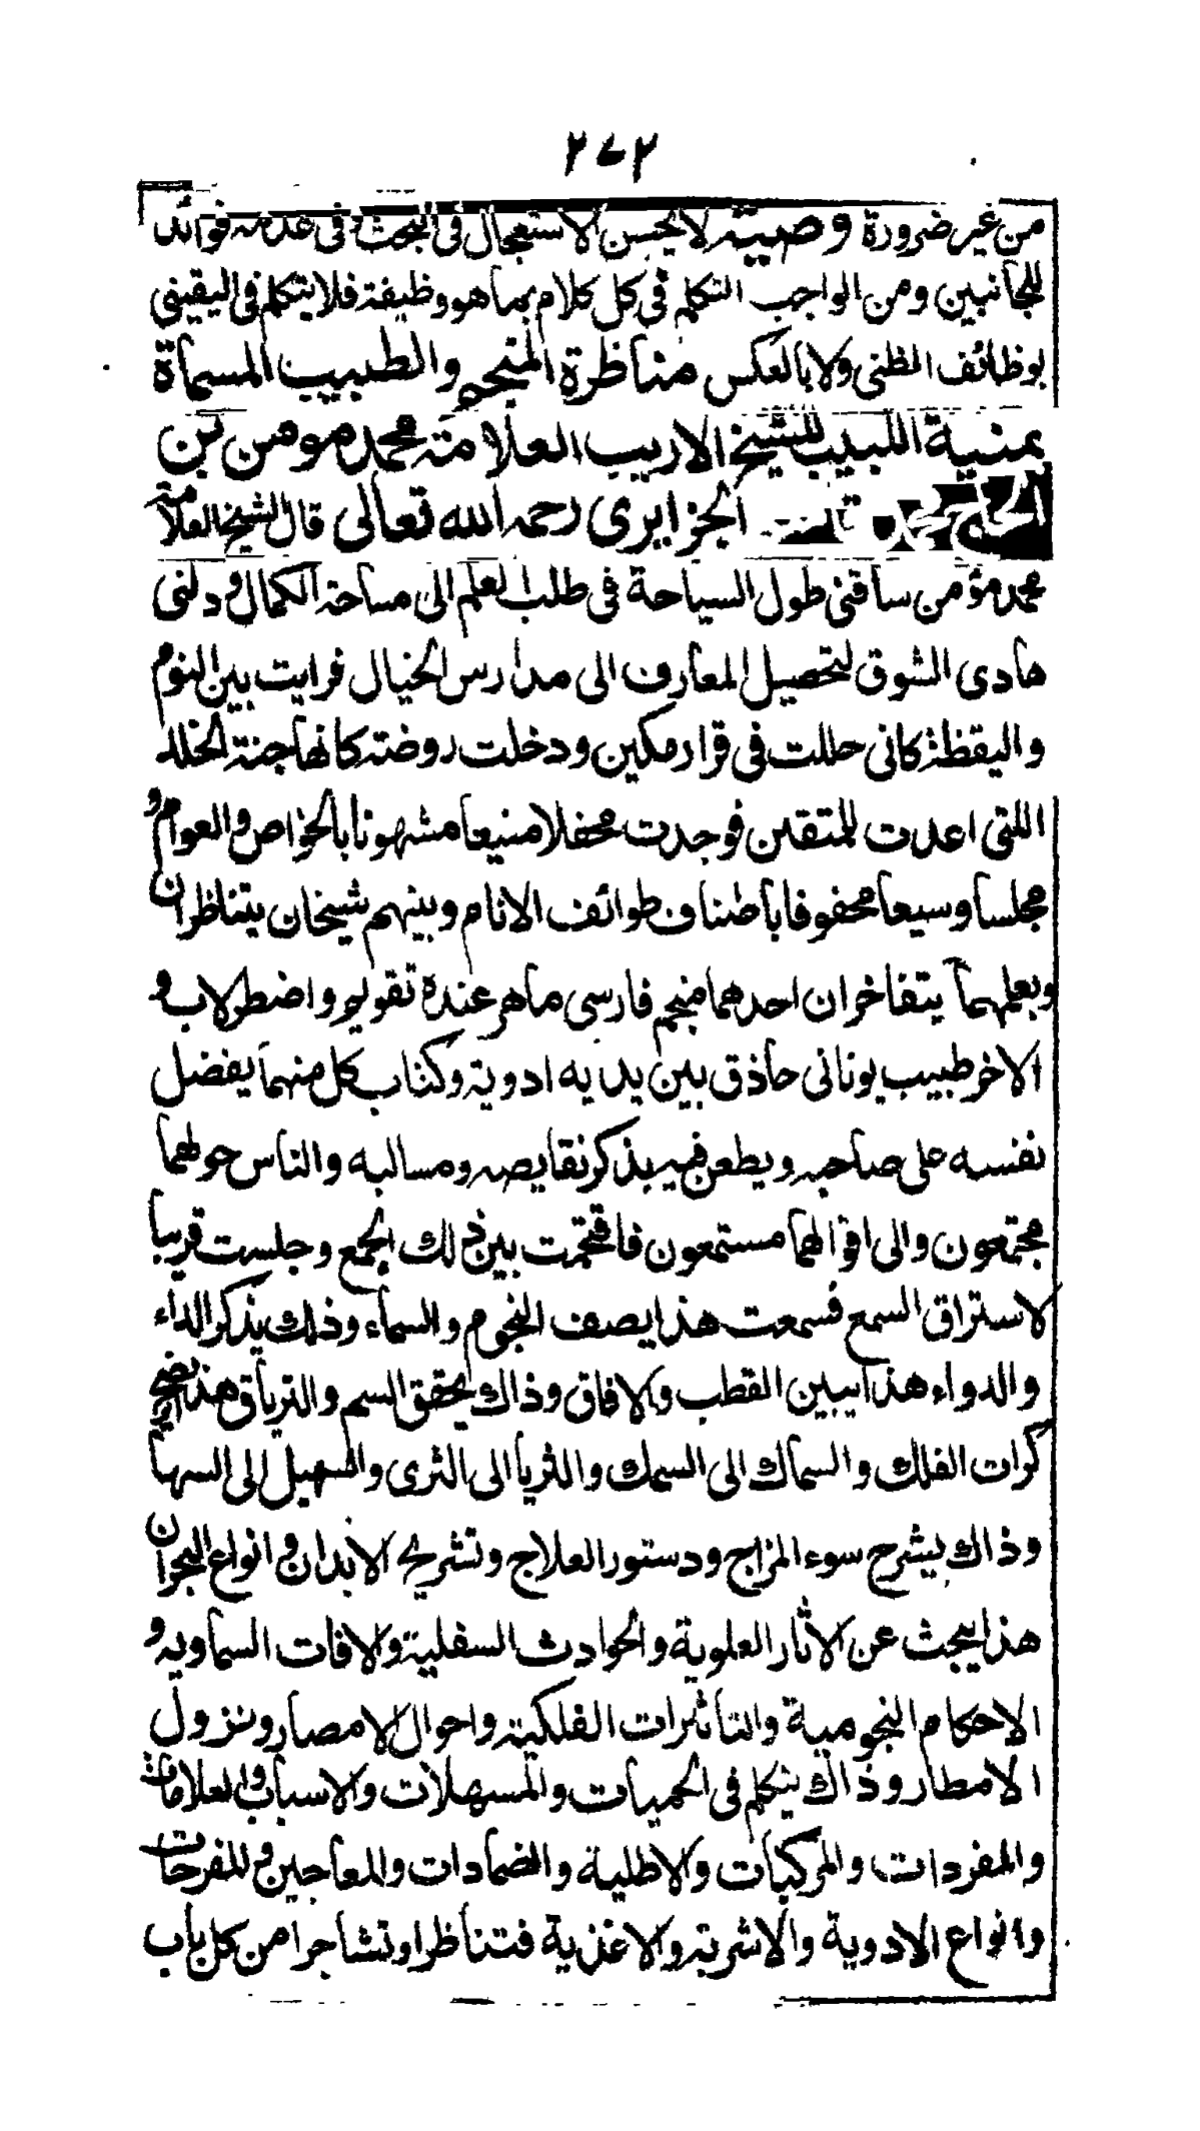 ٢٧٢
من غير ضرورة وصية لا يحسن الاستعجال فى البحث وفى عدمه فوائد
للجانبين ومن الواجب التكلم فى كل كلام بما هو وظيفته فلا يتكلم فى اليقينى
بوظائف الظنى ولا بالعكس مناظرة المنجم والطبيب المسماة
بمنية اللبيب للشيخ الاريب العلامة محمد مومن بن
الجزايرى رحمه الله تعالى قال الشيخ العلامة
محمد مؤمن ساقنى طول السياحة فى طلب العلم الى مساحة الكمال و دلنى
هادى الشوق لتحصيل المعارف الى مدارس الخيال فرايت بين النوم
واليقظة كانى حللت فى قرار مكين ودخلت روضة كانها جنة الخلد
اللتى اعدت للمتقين فوجدت محفلا منيعا مشهونا بالخواص والعوام و
مجلسا وسيعا محفوفا باطناف طوائف الانام وبينهم شيخان يتناظران
وبعلمهما يتفاخران احدهما منجم فارسى ماهر عنده تقويم واضطرلاب و
الاخر طبيب يونانى حاذق بين يديه ادوية وكتاب كل منهما يفضل
نفسه على صاحبه ويطعن فيه بذكر نقايصه ومسالبه والناس حولهما
مجتمعون والى اقوالهما مستمعون فاقتحمت بين ذلك الجمع وجلست قريبا
لاستراق السمع فسمعت هذا يصف النجوم والسماء وذلك يذكر الداء
والدواء هذا يبين القطب والافاق وذاك يحقق السم والترياق هذا يوضح
كرات الفلك والسماك الى السمك والثريا الى الثرى والسهيل الى السها
وذاك يشرح سوء المزاج ودستور العلاج وتشريح الابدان و انواع البحران
هذا يبحث عن الاثار العلوية والحوادث السفلية والافات السماويه و
الاحكام النجومية والتاثيرات الفلكية واحوال الامصار ونزول
الامطار وذاك يتكلم فى الحميات والمسهلات والاسباب والعلامات
والمفردات والمركبات والاطلية والضمادات والمعاجين و المفرحات
وانواع الادوية والاشربة والاغذية فتناظرا وتشاجرا من كل باب